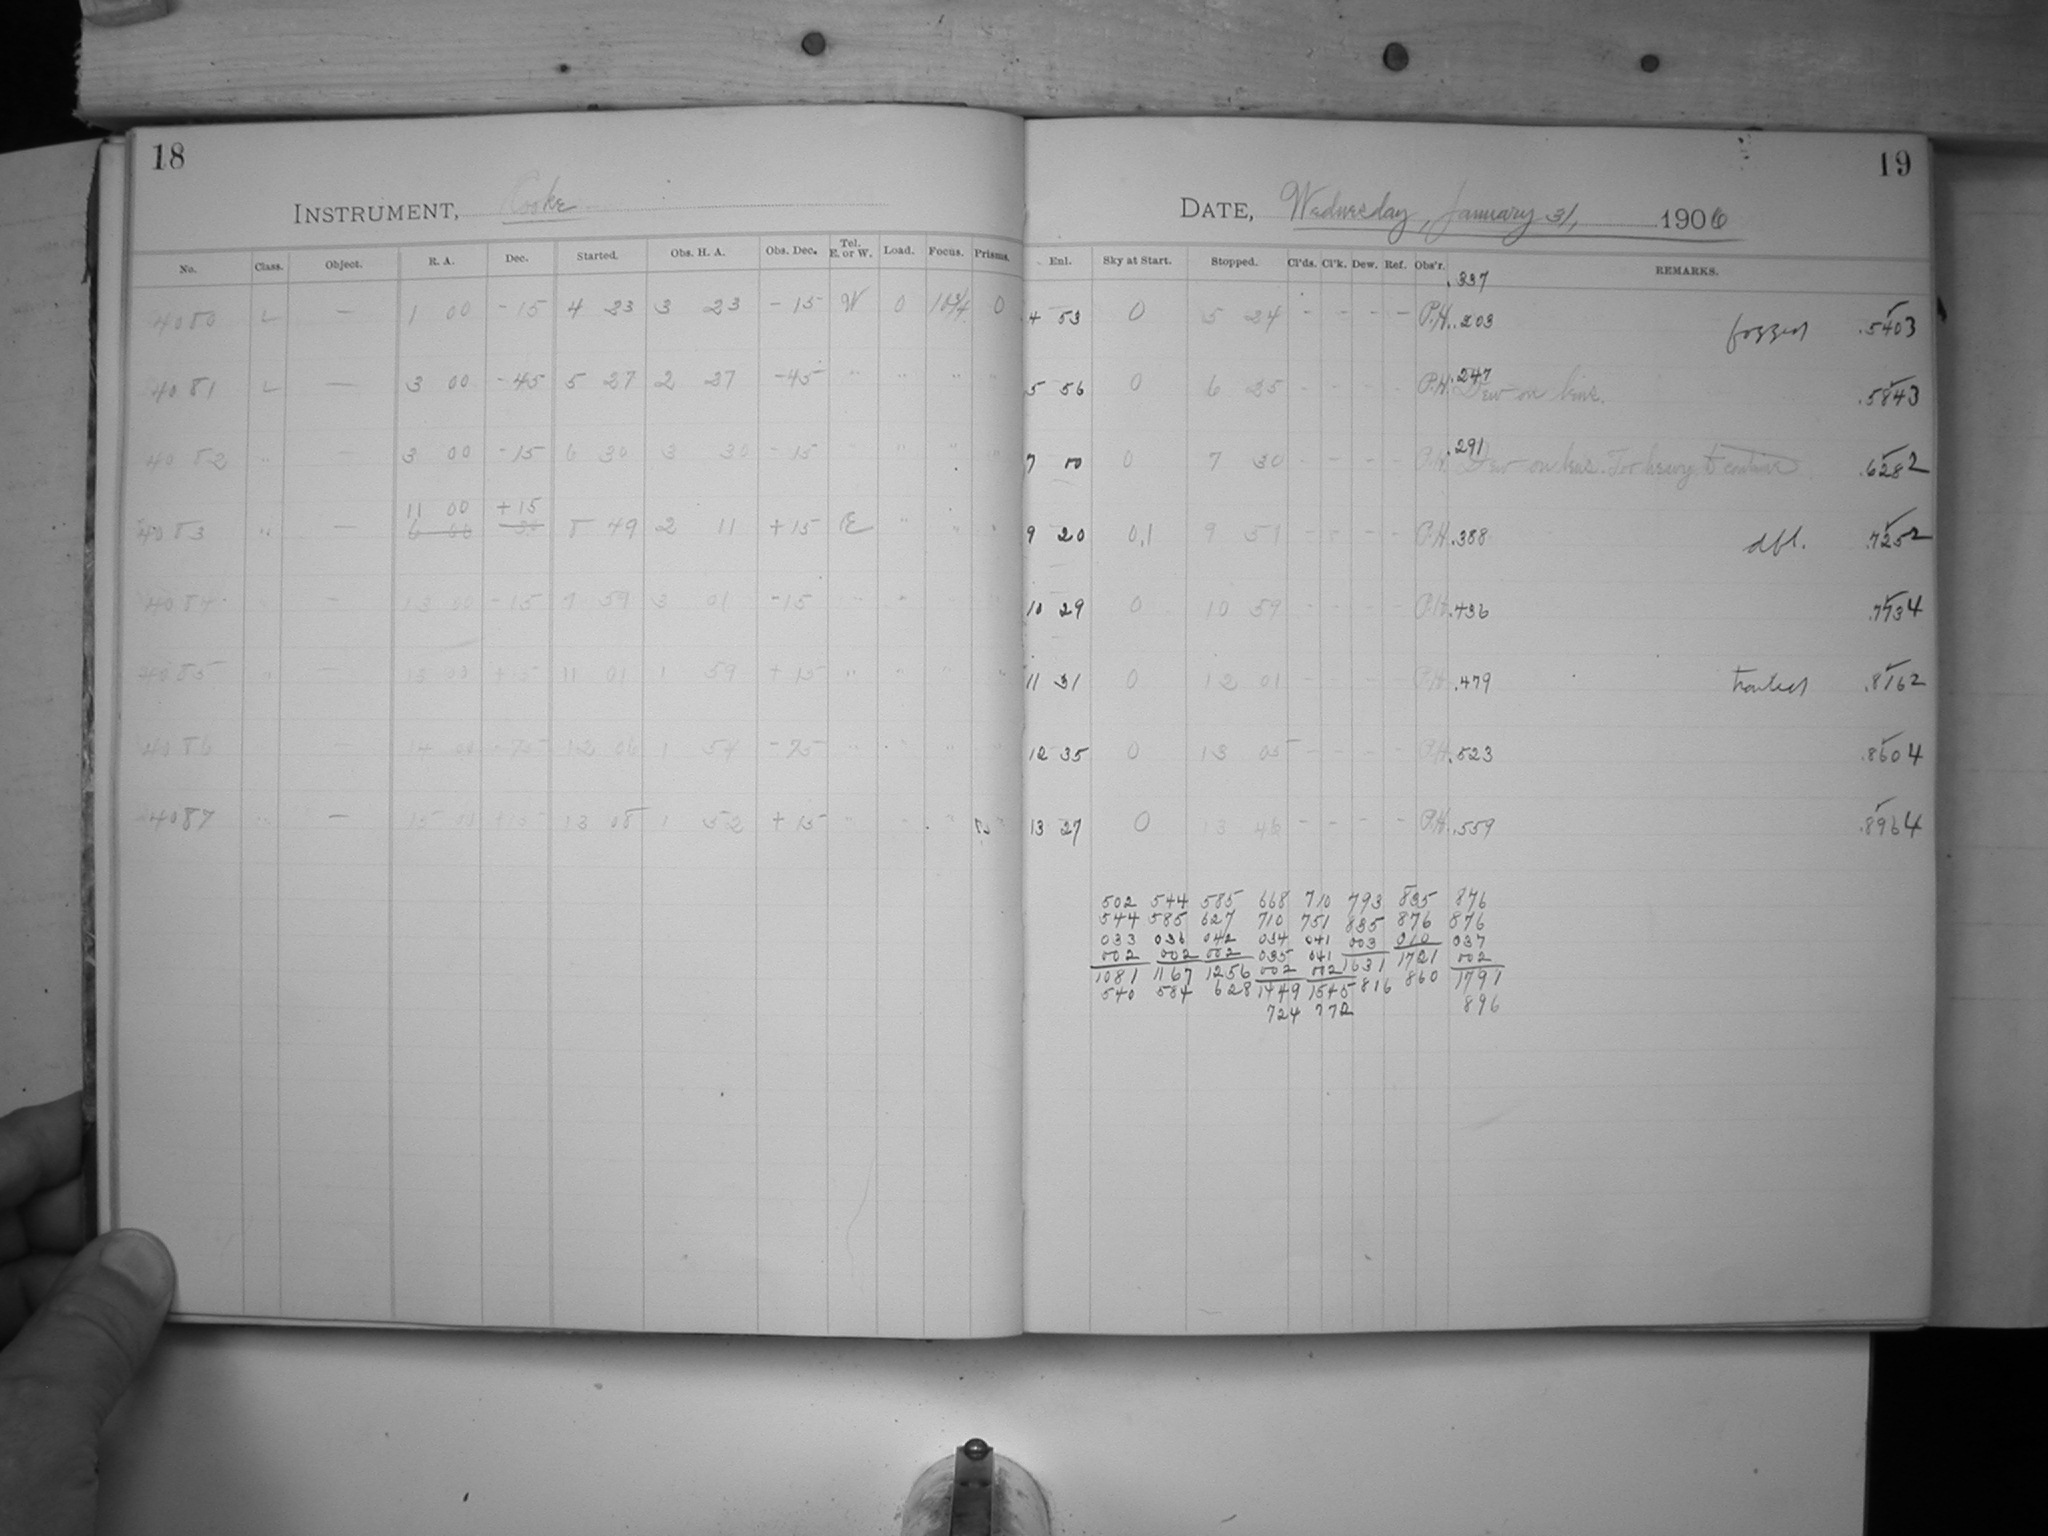 18
INSTRUMENT, Cooke
No. Class. Object. R. A. Dec. Started. Obs. H. A. Obs. Dec. Tel. E. or W. Load. Focus. Prisms.
4080 L — 1 00 -15 4 23 3 23 -15 W 0 10¾ 0
4081 L — 3 00 -45 5 27 2 27 -45 " " " "
4082 " — 3 00 -15 6 30 3 30 -15 " " "
11 00 +15
4083 " — 8 49 2 11 +15 E " " "
4084 " — 13 00 -15 9 59 3 01 -15 " " "
4085 " — 13 00 +15 11 01 1 59 +15 " " " "
4086 — 14 00 -75 12 06 1 54 -75 " " " "
4087 " — 15 00 +15 13 08 1 52 +15 " " "
19
DATE, Wednesday, January 31, 1906
Enl. Sky at Start. Stopped. Cl'ds. Cl'k. Dew. Ref. Obs'r. REMARKS.
.337
4 53 0 5 24 - - - - P.H. .203 fogged .5403
5 56 0 6 25 - - - - P.H. .247 Dew on lens. .5843
7 00 0 7 30 - - - - P.H. .291 Dew on lens. Too heavy to continue. .6282
9 20 0,1 9 51 - - - - P.H. .388 dbl. .7252
10 29 0 10 59 - - - - P.H. .436 .7734
11 31 0 12 01 - - - - P.H. .479 trailed .8162
12 35 0 13 05 - - - - P.H. .523 .8604
13 27 0 13 46 - - - - P.H. .559 .8964
502 544 585 668 710 793 835 876
544 585 627 710 751 835 876 876
033 036 042 034 041 003 010 037
002 002 002 035 041 1631 1721 002
1081 1167 1256 002 002 816 860 1791
540 584 628 1449 1545 896
724 772